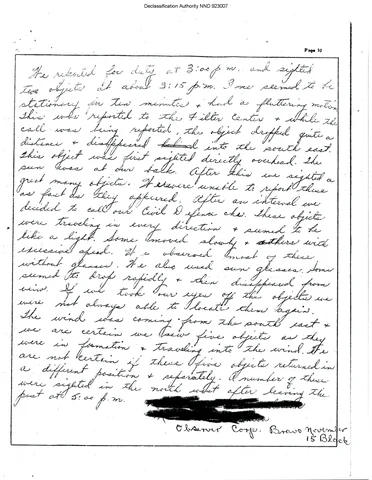 Declassification Authority NND 923007
Page 10
We reported for duty at 3:00 p.m. and sighted
two objects at about 3:15 p.m. One seemed to be
stationary for ten minutes & had a fluttering motion
This was reported to the Filter Center & while the
call was being reported, the object dropped quite a
distance & disappeared into the south east.
This object was first sighted directly overhead. The
sun was at our back. After this we sighted a
great many objects. We were unable to report these
as fast as they appeared. After an interval we
decided to call our Civil Defense chr. These objects
were traveling in every direction & seemed to be
like a light. Some moved slowly & others with
excessive speed. We observed most of these
without glasses. We also used sun glasses. Some
seemed to drop rapidly & then disappeared from
view. If we took our eyes off the objects we
were not always able to locate them again.
The wind was coming from the south east &
we are certain we saw five objects as they
were in formation & traveling into the wind. We
are not certain if these five objects returned in
a different position & seperately. A number of these
were sighted in the north west after leaving the
post at 5:00 p.m.
Observer Corps. Bravo November
15 Black